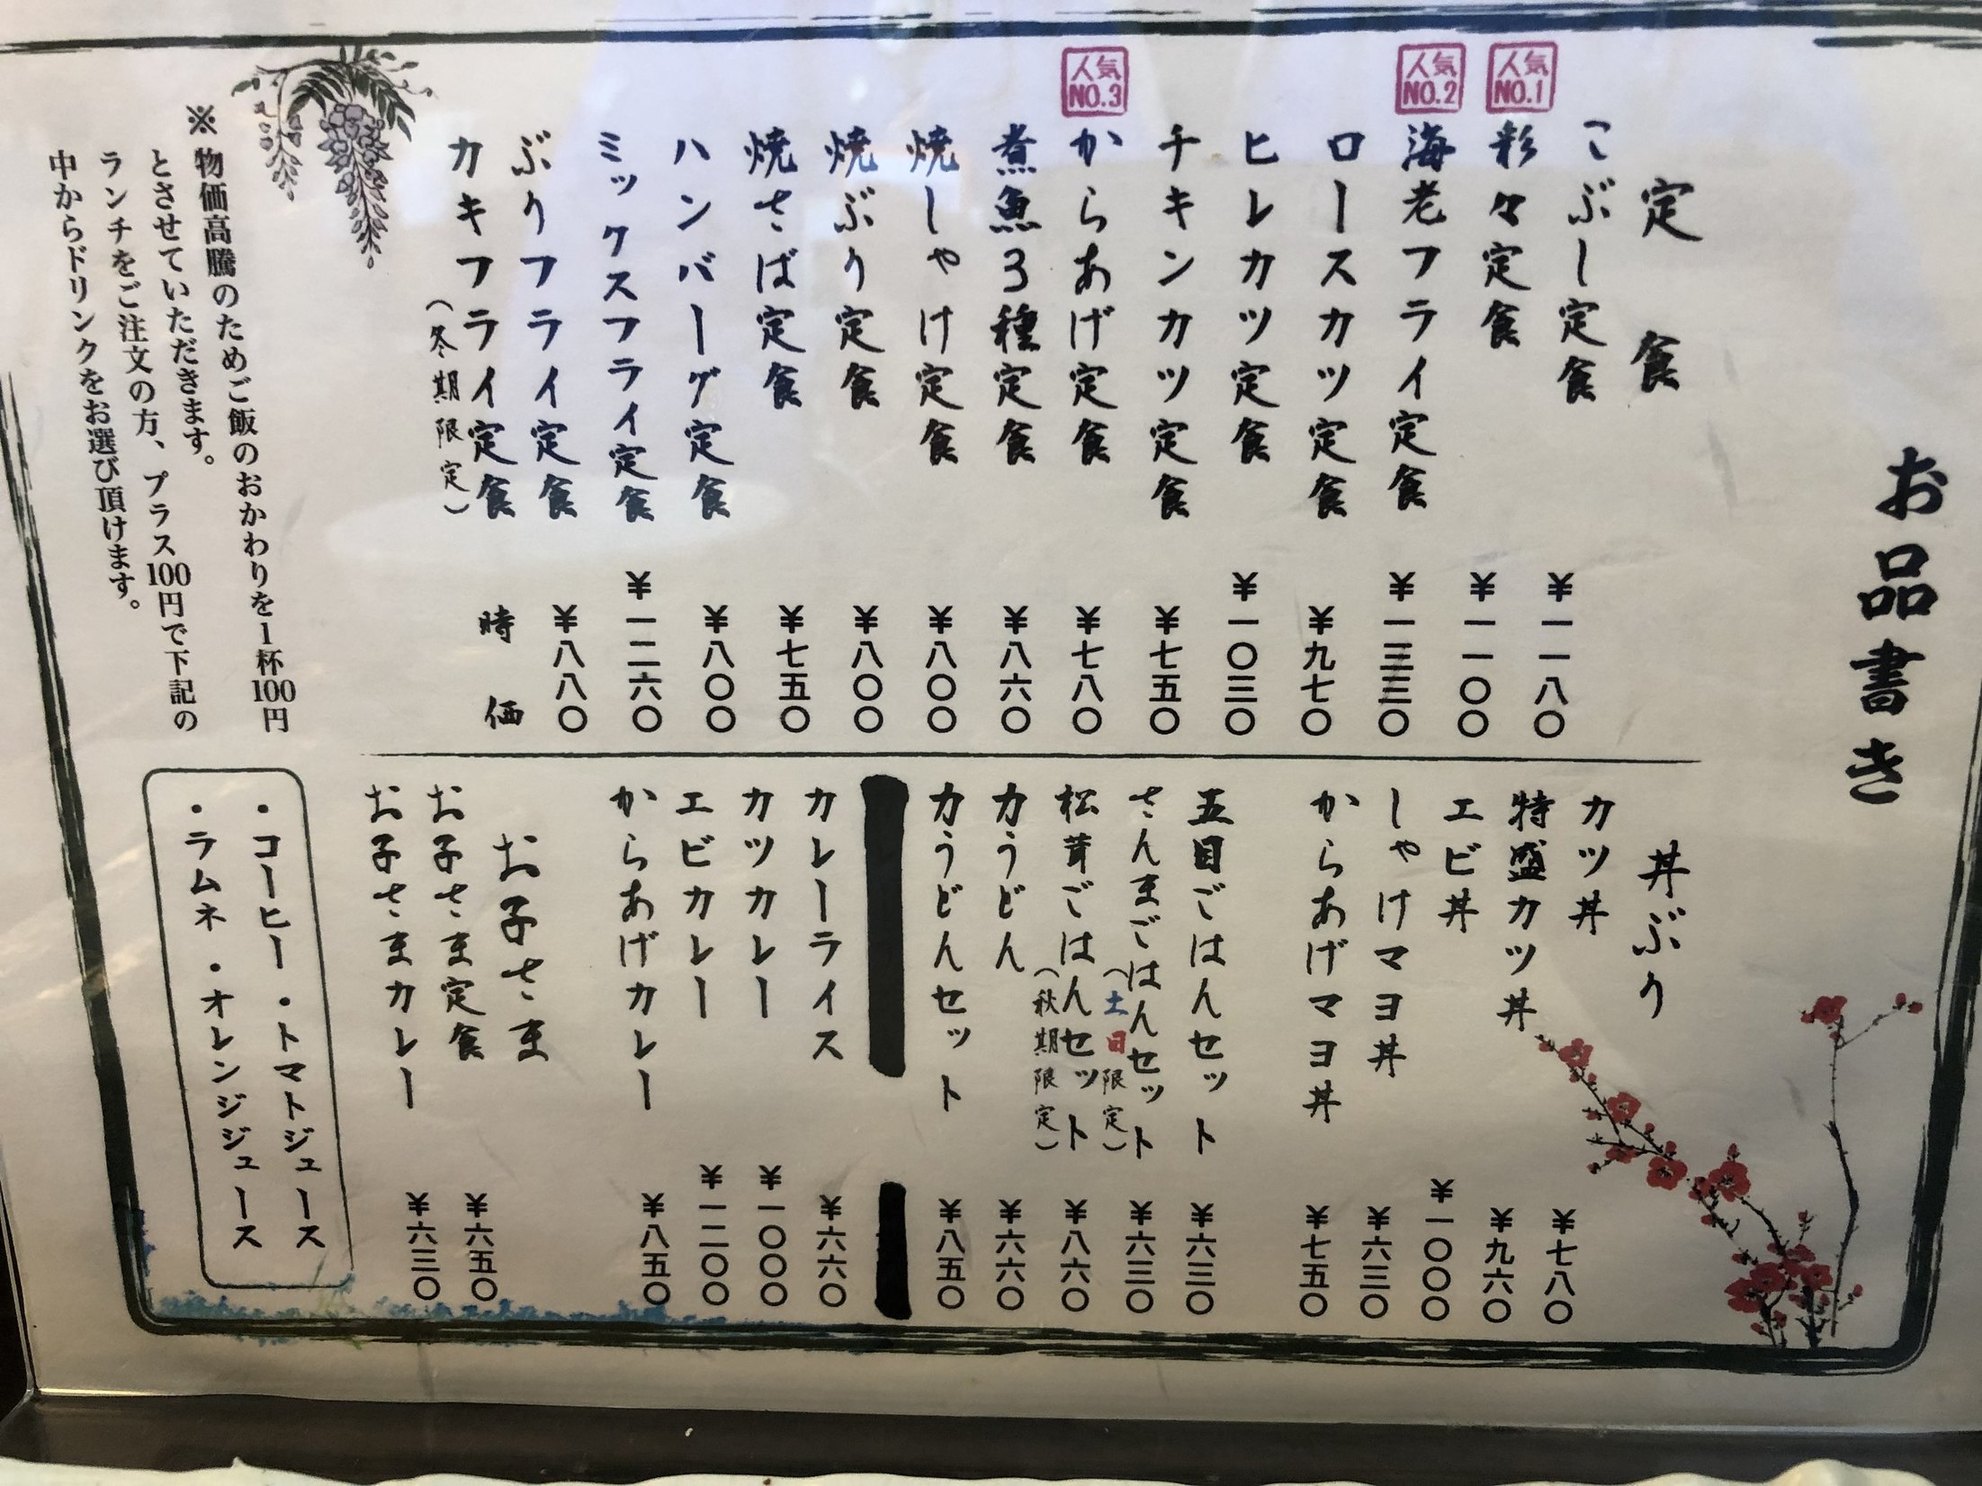 お品書き
定食
こぶし定食 ¥一一八〇
人気NO.1
彩々定食 ¥一一〇〇
人気NO.2
海老フライ定食 ¥一三三〇
ロースカツ定食 ¥九七〇
ヒレカツ定食 ¥一〇三〇
チキンカツ定食 ¥七五〇
人気NO.3
からあげ定食 ¥七八〇
煮魚3種定食 ¥八六〇
焼しゃけ定食 ¥八〇〇
焼ぶり定食 ¥八〇〇
焼さば定食 ¥七五〇
ハンバーグ定食 ¥八〇〇
ミックスフライ定食 ¥一二六〇
ぶりフライ定食 ¥八八〇
カキフライ定食 時価
(冬期限定)
丼ぶり
カツ丼 ¥七八〇
特盛カツ丼 ¥九六〇
エビ丼 ¥一〇〇〇
しゃけマヨ丼 ¥六三〇
からあげマヨ丼 ¥七五〇
五目ごはんセット ¥六三〇
さんまごはんセット ¥六三〇
(土日限定)
松茸ごはんセット ¥八六〇
(秋期限定)
力うどん ¥六六〇
力うどんセット ¥八五〇
カレーライス ¥六六〇
カツカレー ¥一〇〇〇
エビカレー ¥一二〇〇
からあげカレー ¥八五〇
お子さま
お子さま定食 ¥六五〇
お子さまカレー ¥六三〇
※物価高騰のためご飯のおかわりを1杯100円
とさせていただきます。
ランチをご注文の方、プラス100円で下記の
中からドリンクをお選び頂けます。
・コーヒー・トマトジュース
・ラムネ・オレンジジュース